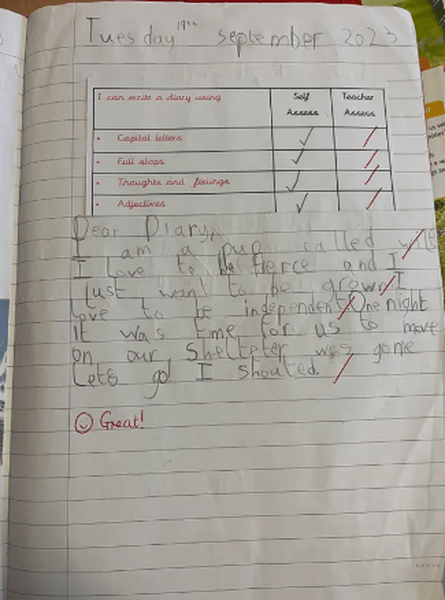 Tuesday 19th september 2023
I can write a diary using Self Assess Teacher Assess
• Capital letters
• Full stops
• Thoughts and feelings
• Adjectives
Dear Diary,
I am a pup called
I Love to be fierce and I
Just want to be grown. I
Love to be independent. One night
It was time for us to move
on our shelteter was gone
Lets go! I shouted.
Great!